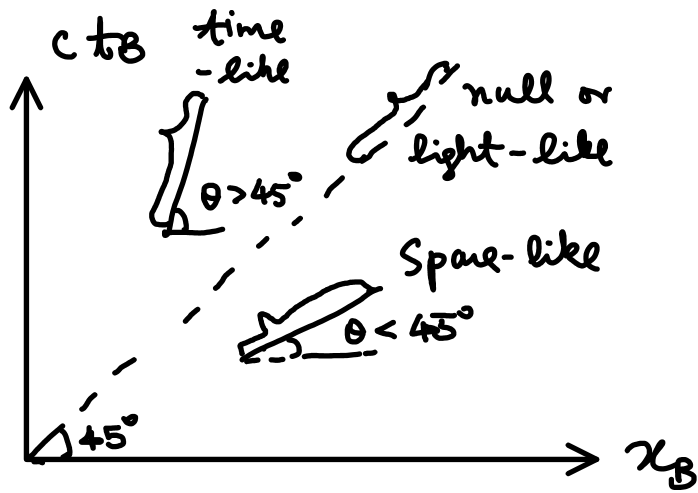 c t_B
time
-like
null or
light-like
θ > 45°
Space-like
θ < 45°
45°
x_B